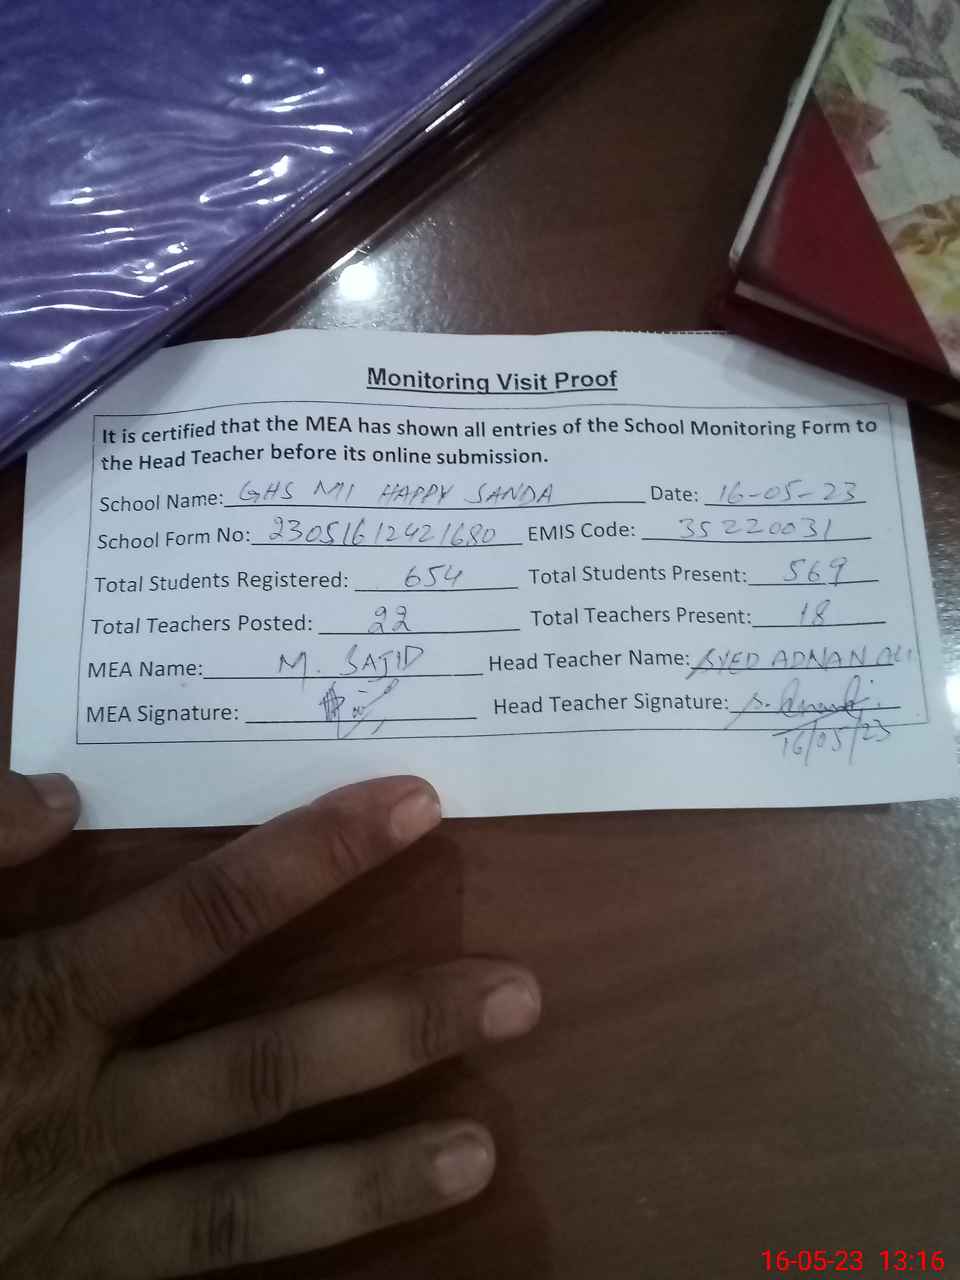 Monitoring Visit Proof
It is certified that the MEA has shown all entries of the School Monitoring Form to
the Head Teacher before its online submission.
School Name: GHS MI HAPPY SANDA Date: 16-05-23
School Form No: 23051612421680 EMIS Code: 35220031
Total Students Registered: 654 Total Students Present: 569
Total Teachers Posted: 22 Total Teachers Present: 18
MEA Name: M. SAJID Head Teacher Name: SYED ADNAN ALI
MEA Signature: Head Teacher Signature:
16/05/23
16-05-23 13:16